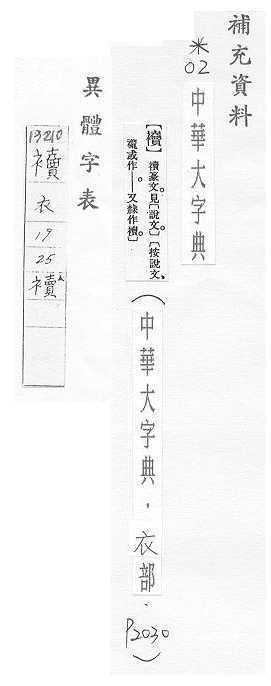 補充資料
*
02
中華大字典
【襩】襩篆文。見〔說文〕〔按說文、
襱或作——又隸作襩〕
(中華大字典，衣部．
P2030)
異體字表
13210
襩
衣
19
25
襩